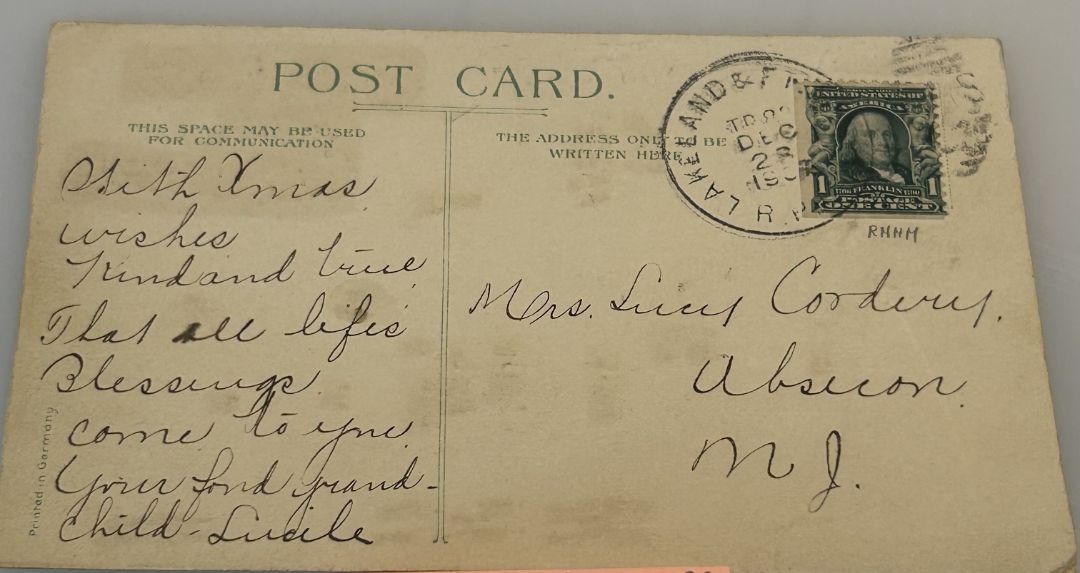 POST CARD.
THIS SPACE MAY BE USED
FOR COMMUNICATION
THE ADDRESS ONLY TO BE
WRITTEN HERE
With Xmas
wishes
Kind and true
That all life's
Blessings
come to you
Your fond grand-
child - Lucile
Printed in Germany
LAKELAND &
DEC
R.P.
UNITED STATES OF
AMERICA
1 FRANKLIN 1
POSTAGE
ONE CENT
RHHM
Mrs. Lucy Cordery.
Absecon.
N J.